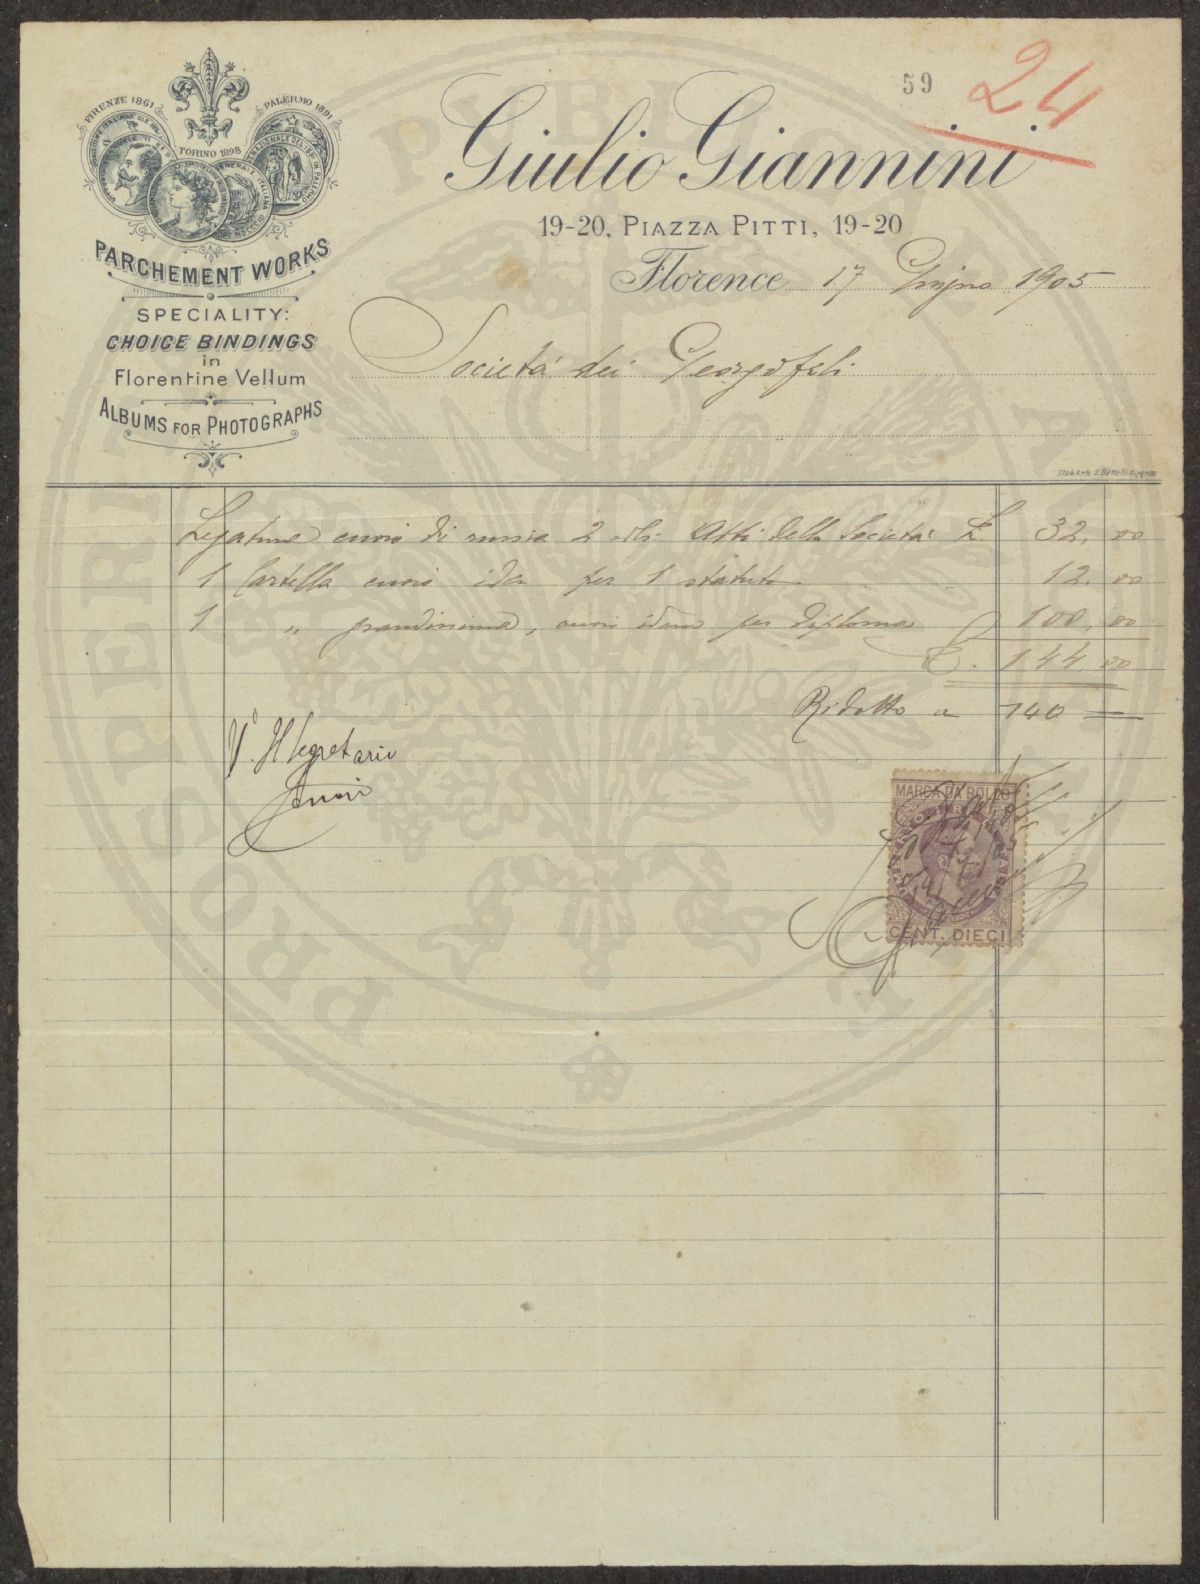 59
24
FIRENZE 1861
PALERMO 1891
TORINO 1898
Giulio Giannini
19-20, PIAZZA PITTI, 19-20
PARCHEMENT WORKS
Florence 17 Giugno 1905
SPECIALITY:
CHOICE BINDINGS
in
Florentine Vellum
ALBUMS FOR PHOTOGRAPHS
Società dei Georgofili
Stab. Arti S. Benelli-Firenze
Legature cuoio di russia 2 vol: Atti della Società £ 32,00
1 Cartella cuoio idem per 1 statuto 12,00
1 " grandissima, cuoio idem per diploma 100,00
£. 144,00
Ridotto a 140
Vº Il Segretario
MARCA DA BOLLO
CENT. DIECI
PROSPERITATI PUBLICAE AUGENDAE